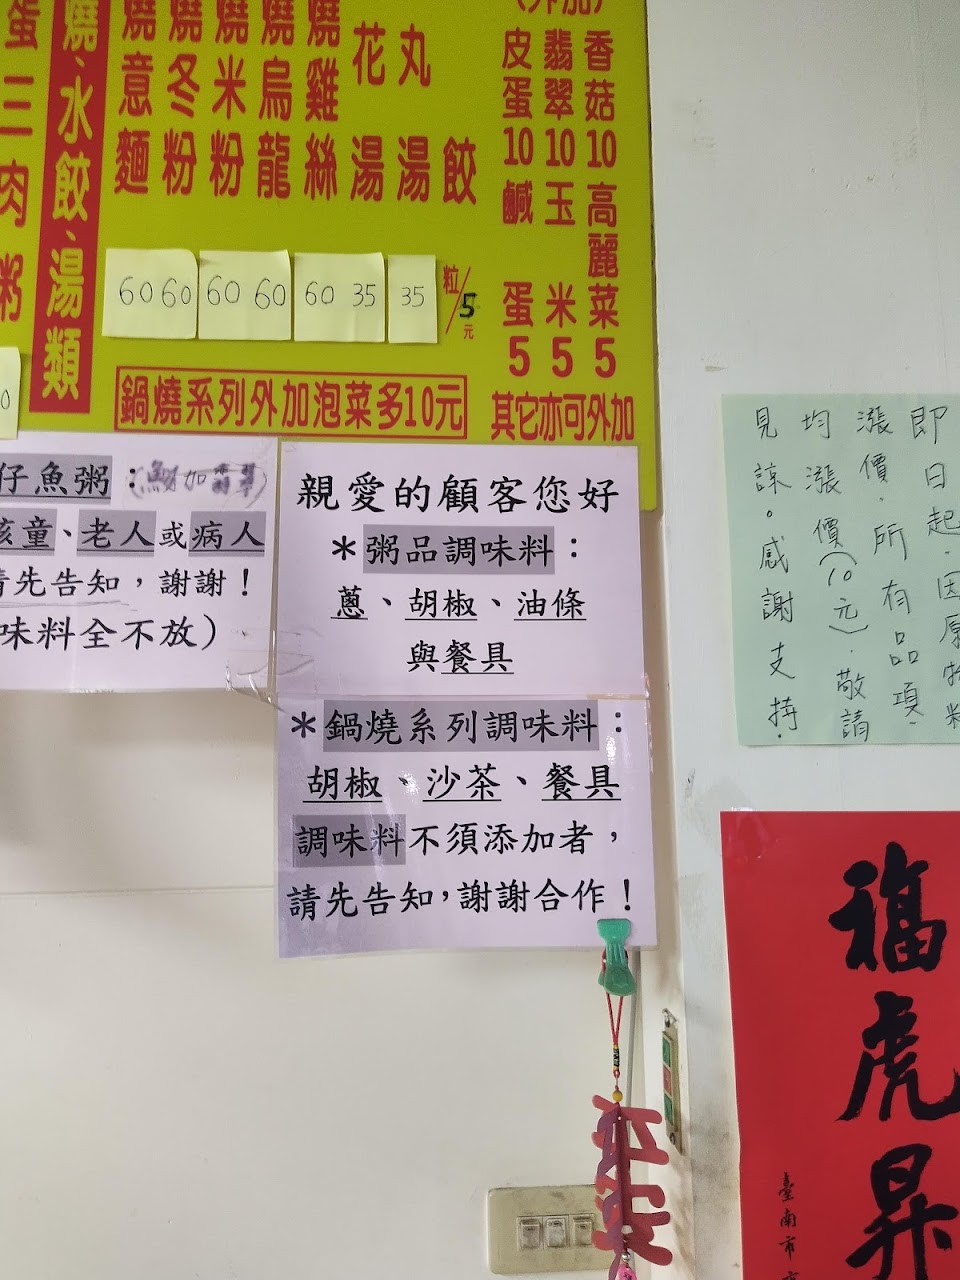 蛋三肉粥
燒、水餃、湯類
燒意麵 60
燒冬粉 60
燒米粉 60
燒烏龍 60
燒雞絲 60
花湯 35
丸湯 35
餃 粒/5元
鍋燒系列外加泡菜多10元
(外加)
皮蛋10 鹹蛋5
翡翠10 玉米5
香菇10 高麗菜5
其它亦可外加
仔魚粥：
孩童、老人或病人
請先告知，謝謝！
味料全不放）
親愛的顧客您好
＊粥品調味料：
蔥、胡椒、油條
與餐具
＊鍋燒系列調味料：
胡椒、沙茶、餐具
調味料不須添加者，
請先告知，謝謝合作！
即日起．因原物料
漲價．所有品項．
均漲價(10元)．敬請
見諒。感謝支持．
福虎昇
臺南市